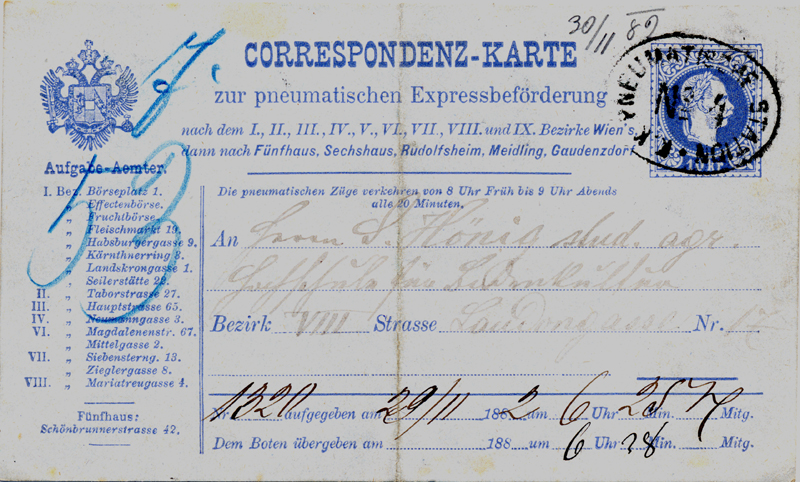 30/11 82
CORRESPONDENZ-KARTE
zur pneumatischen Expressbeförderung
nach dem I., II., III., IV., V., VI., VII., VIII. und IX. Bezirke Wien's
dann nach Fünfhaus, Sechshaus, Rudolfsheim, Meidling, Gaudenzdorf
K. K. PNEUMATISCHE STATION
No 4
53
Aufgabe-Aemter.
I. Bez. Börseplatz 1.
„ Effectenbörse.
„ Fruchtbörse.
„ Fleischmarkt 19.
„ Habsburgergasse 9.
„ Kärnthnerring 3.
„ Landskrongasse 1.
„ Seilerstätte 22.
II. „ Taborstrasse 27.
III. „ Hauptstrasse 65.
IV. „ Neumanngasse 3.
VI. „ Magdalenenstr. 67.
„ Mittelgasse 2.
VII. „ Siebensterng. 13.
„ Zieglergasse 8.
VIII. „ Mariatreugasse 4.
Fünfhaus:
Schönbrunnerstrasse 42.
Die pneumatischen Züge verkehren von 8 Uhr Früh bis 9 Uhr Abends
alle 20 Minuten.
An Herrn S. König stud. agr.
Hochschule für Bodenkultur
Bezirk VIII Strasse Laudongasse Nr. 17
Nr. 1320 aufgegeben am 29/11 1882 um 6 Uhr 25 Min. N Mitg.
Dem Boten übergeben am 188 um 6 Uhr 28 Min. Mitg.